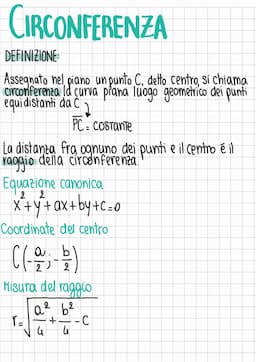 CIRCONFERENZA
DEFINIZIONE:
Assegnato nel piano un punto C, detto centro, si chiama
circonferenza la curva piana luogo geometrico dei punti
equidistanti da C
PC = COSTANTE
La distanza fra ognuno dei punti e il centro è il
raggio della circonferenza.
Equazione canonica
x²+y²+ax+by+c=0
Coordinate del centro
C(-a/2; -b/2)
Misura del raggio
r=√(a²/4 + b²/4 - c)